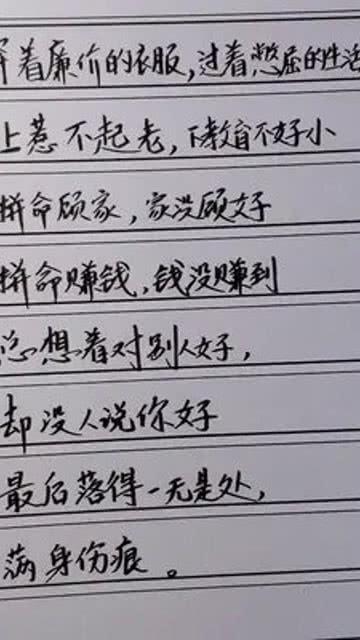 穿着廉价的衣服,过着憋屈的生活
上惹不起老,下教育不好小
拼命顾家,家没顾好
拼命赚钱,钱没赚到
总想着对别人好,
却没人说你好
最后落得一无是处,
满身伤痕。